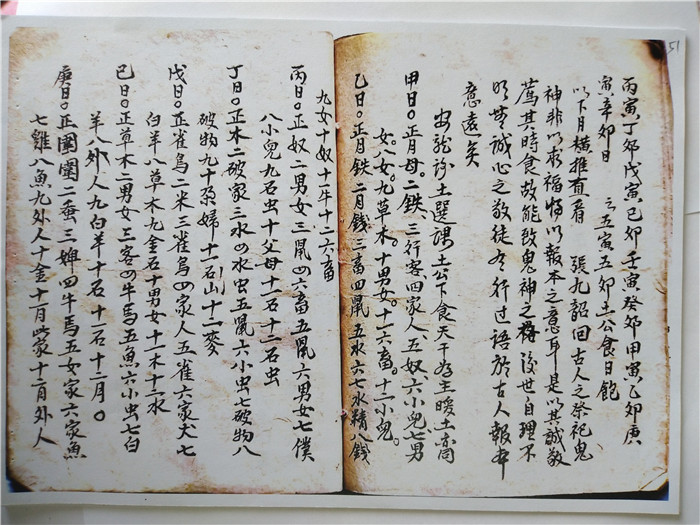 51
丙寅丁卯戊寅己卯壬寅癸卯甲寅乙卯庚
寅辛卯日 之五寅五卯土公食日飽
以下月橫推查看 張九韶曰古人之祭祀鬼
神非以求福特以報本之意耳是以其誠敬
薦其時食故能致鬼神之 後世自理不
明 誠心之敬徒 行过諂於古人報本
意遠矣
安龍診土選課土公下食天干為主暖土亦同
甲日〇正月母。二鉄、三行客、四家人、五奴、六小兒、七男
女。八女。九草木。十男女。十一六畜。十二小兒。
乙日〇正月鉄二月錢三畜四鼠五水六七水精八錢
九女十奴十一牛十二六畜
丙日〇正奴二男女三鼠四六畜五鼠六男女七僕
八小兒九石虫十父母十一石十二石虫
丁日〇正木二破家三水四水虫五鼠六小虫七破物八
破物九十孕婦十一石山十二麥
戊日〇正雀鳥二米三雀鳥四家人五雀六家犬七
白羊八草木九金石十男女十一木十二水
己日〇正草木二男女三客四牛馬五魚六小虫七白
羊八外人九白羊十石十一石十二月〇
庚日〇正 二蚕三婢四牛馬五女家六家魚
七雞八魚九外人十金十月此家十二月外人